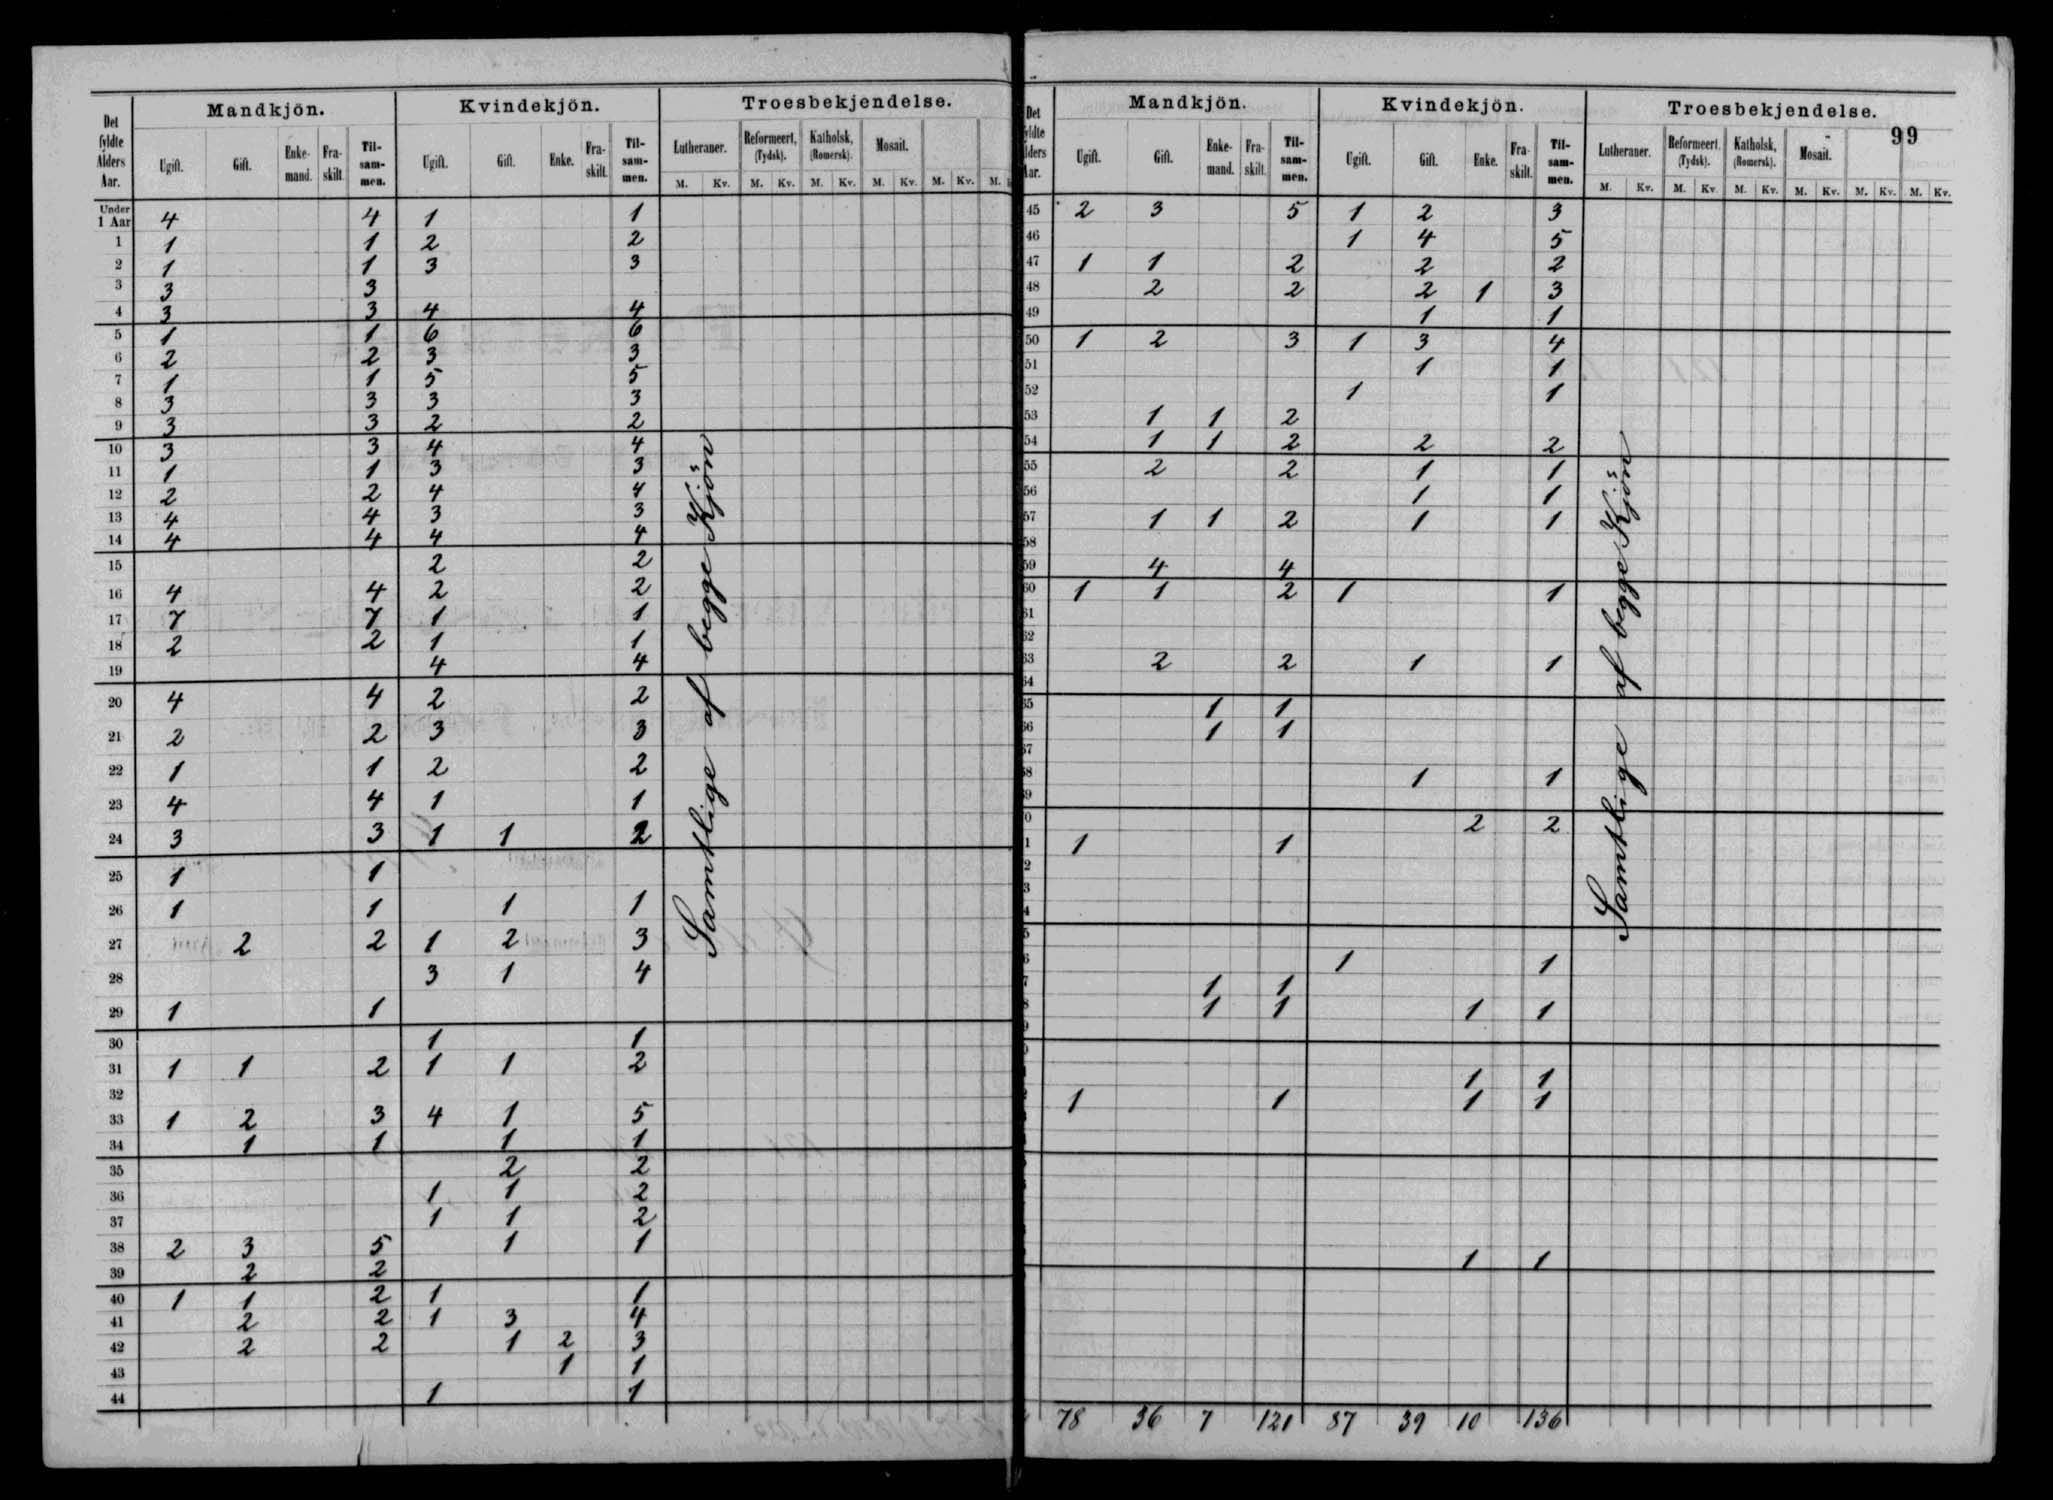 Mandkjön. Kvindekjön. Troesbekjendelse.
Det fyldte Alders Aar. Ugift. Gift. Enke-mand. Fra-skilt. Til-sam-men. Ugift. Gift. Enke. Fra-skilt. Til-sam-men. Lutheraner. Reformeert, (Tydsk). Katholsk, (Romersk). Mosait.
M. Kv. M. Kv. M. Kv. M. Kv. M. Kv. M.
Under 1 Aar 4 4 1 1
1 1 1 2 2
2 1 1 3 3
3 3 3
4 3 3 4 4
5 1 1 6 6
6 2 2 3 3
7 1 1 5 5
8 3 3 3 3
9 3 3 2 2
10 3 3 4 4
11 1 1 3 3
12 2 2 4 4
13 4 4 3 3
14 4 4 4 4
15 2 2
16 4 4 2 2
17 7 7 1 1
18 2 2 1 1
19 4 4
20 4 4 2 2
21 2 2 3 3
22 1 1 2 2
23 4 4 1 1
24 3 3 1 1 2
25 1 1
26 1 1 1 1
27 2 2 1 2 3
28 3 1 4
29 1 1
30 1 1
31 1 1 2 1 1 2
32
33 1 2 3 4 1 5
34 1 1 1 1
35 2 2
36 1 1 2
37 1 1 2
38 2 3 5 1 1
39 2 2
40 1 1 2 1 1
41 2 2 1 3 4
42 2 2 1 2 3
43 1 1
44 1 1
Samtlige af begge Kjön
99
Mandkjön. Kvindekjön. Troesbekjendelse.
Det yldte lders Aar. Ugift. Gift. Enke-mand. Fra-skilt. Til-sam-men. Ugift. Gift. Enke. Fra-skilt. Til-sam-men. Lutheraner. Reformeert. (Tydsk). Katholsk, (Romersk). Mosait.
M. Kv. M. Kv. M. Kv. M. Kv. M. Kv. M. Kv.
45 2 3 5 1 2 3
46 1 4 5
47 1 1 2 2 2
48 2 2 2 1 3
49 1 1
50 1 2 3 1 3 4
51 1 1
52 1 1
53 1 1 2
54 1 1 2 2 2
55 2 2 1 1
56 1 1
57 1 1 2 1 1
58
59 4 4
60 1 1 2 1 1
61
62
63 2 2 1 1
64
65 1 1
66 1 1
67
68 1 1
69
0 2 2
1 1 1
2
3
4
5
6 1 1
7 1 1
8 1 1 1 1
9
1 1
1 1 1 1
1 1
Samtlige af begge Kjön
78 36 7 121 87 39 10 136